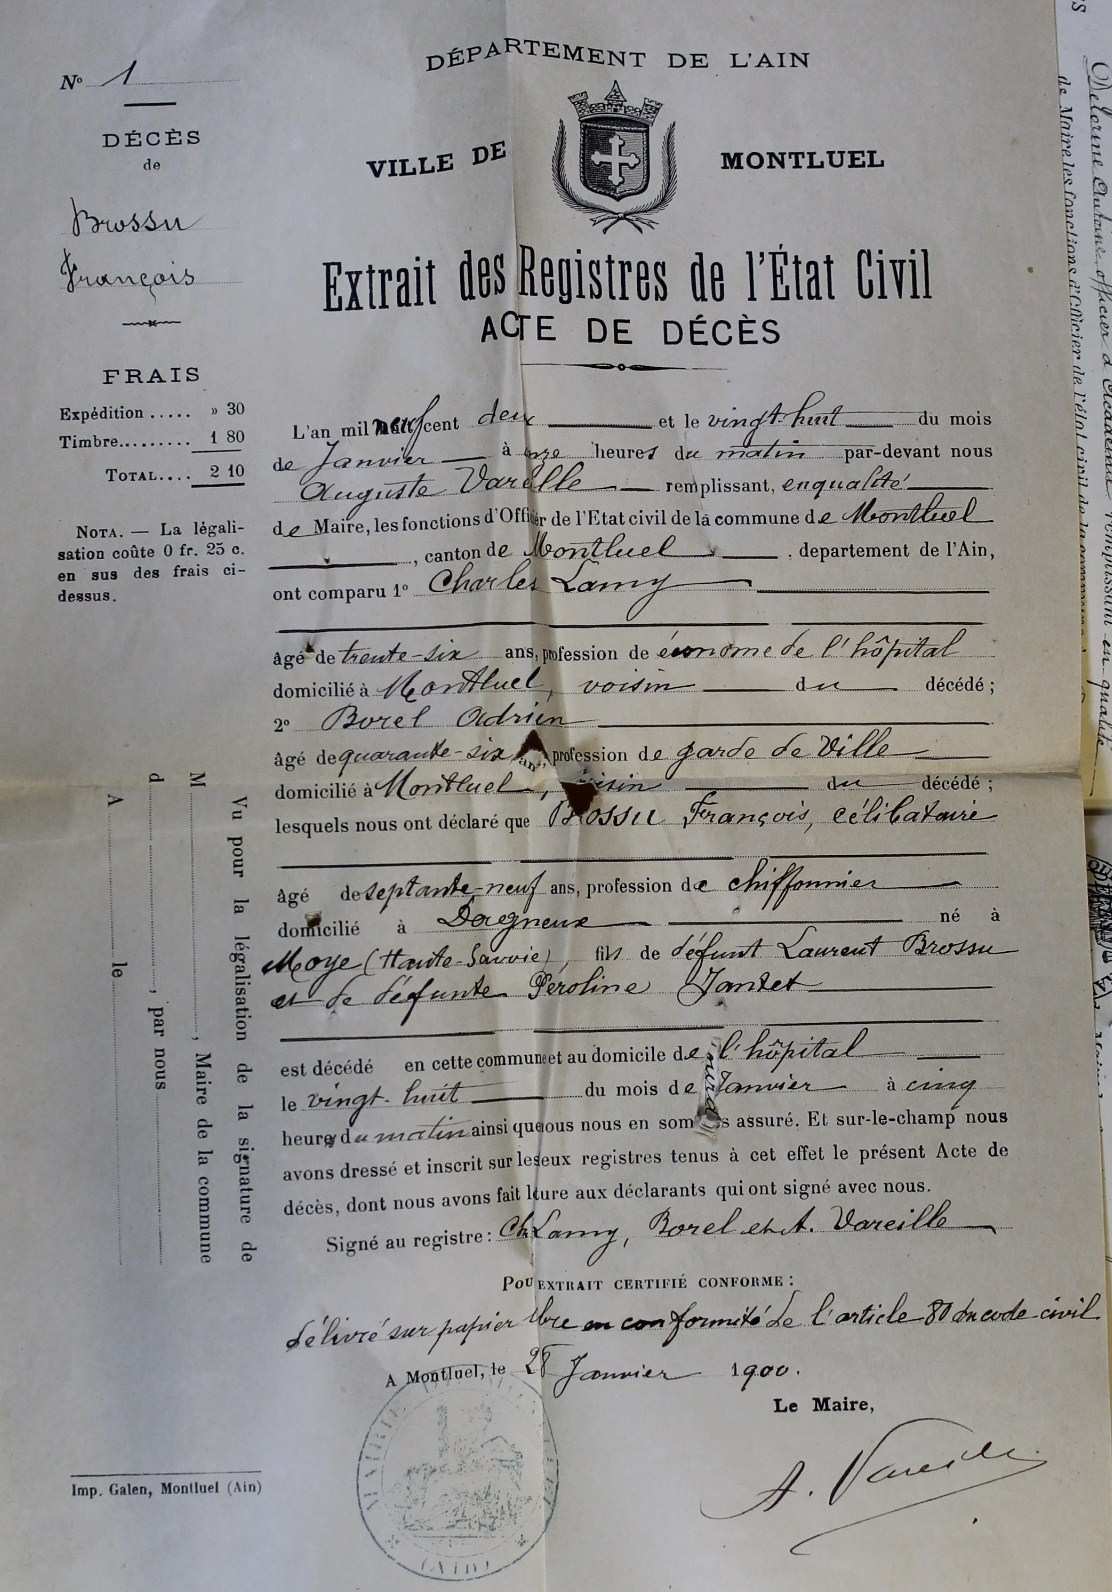 DÉPARTEMENT DE L'AIN
VILLE DE MONTLUEL
Extrait des Registres de l'État Civil
ACTE DE DÉCÈS
N° 1
DÉCÈS
de
Brossu
François
FRAIS
Expédition ..... » 30
Timbre......... 1 80
TOTAL.... 2 10
NOTA. — La légali-
sation coûte 0 fr. 25 c.
en sus des frais ci-
dessus.
L'an mil neuf cent deux et le vingt-huit du mois
de Janvier à onze heures du matin par-devant nous
Auguste Vareille remplissant, en qualité
de Maire, les fonctions d'Officier de l'Etat civil de la commune de Montluel
, canton de Montluel, departement de l'Ain,
ont comparu 1° Charles Lamy
âgé de trente-six ans, profession de économe de l'hôpital
domicilié à Montluel, voisin du décédé ;
2° Borel Adrien
âgé de quarante-six ans, profession de garde de Ville
domicilié à Montluel, voisin du décédé ;
lesquels nous ont déclaré que Brossu François, célibataire
âgé de septante-neuf ans, profession de chiffonnier
domicilié à Dagneux né à
Moye (Haute-Savoie), fils de défunt Laurent Brossu
et de défunte Péroline Jantet
est décédé en cette commune et au domicile de l'hôpital
le vingt-huit du mois de Janvier à cinq
heures du matin ainsi que nous nous en sommes assuré. Et sur-le-champ nous
avons dressé et inscrit sur les deux registres tenus à cet effet le présent Acte de
décès, dont nous avons fait lecture aux déclarants qui ont signé avec nous.
Signé au registre : Ch. Lamy, Borel et A. Vareille
POUR EXTRAIT CERTIFIÉ CONFORME :
délivré sur papier libre en conformité de l'article 80 du code civil
A Montluel, le 28 Janvier 1900.
Le Maire,
A. Vareille
MAIRIE
(AIN)
Imp. Galen, Montluel (Ain)
Vu pour la légalisation de la signature de
M , Maire de la commune
d , par nous
A le
Delorme Antoine officier d'Académie remplissant en qualité
de Maire les fonctions d'Officier de l'état civil de la commune